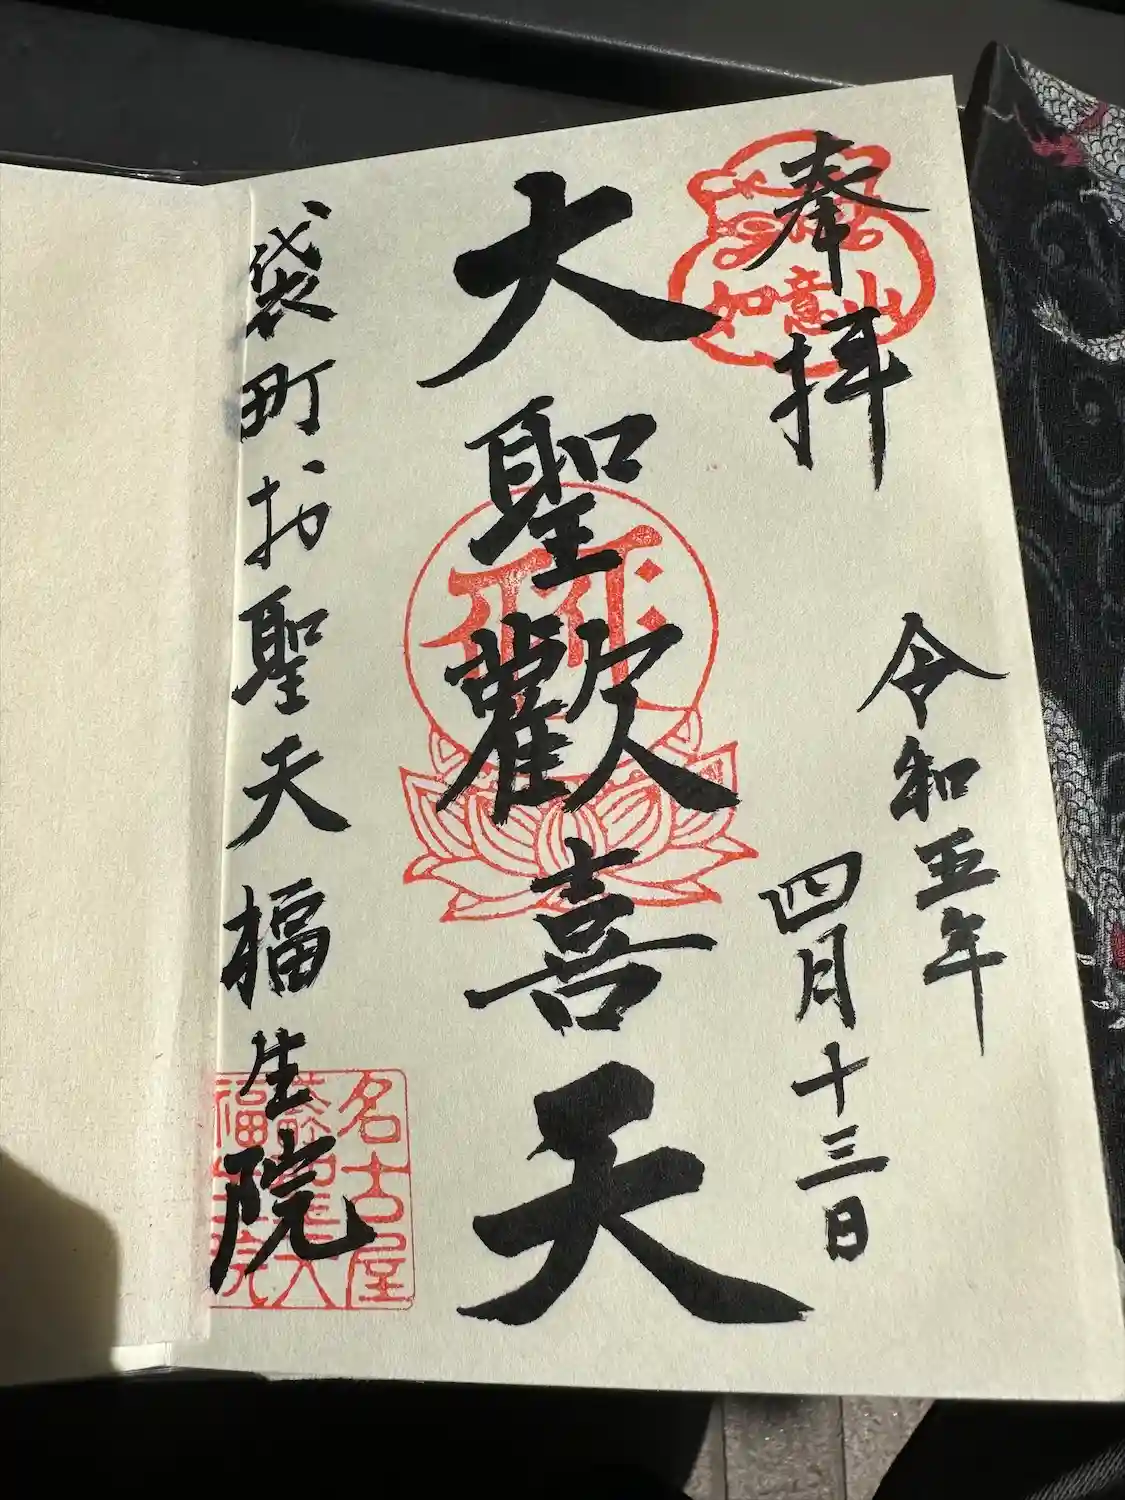 奉拝
如意山
令和五年
四月十三日
大聖歡喜天
袋町お聖天 福生院
名古屋